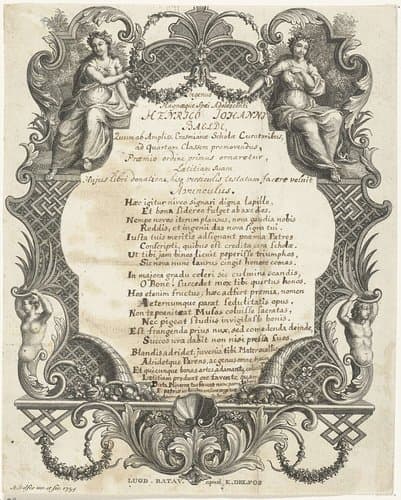 Ingenuo
Magnæque Spei Adolescenti
HENRICO IOHANNI
BACSDI,
Quum ab Ampliss. Erasmianæ Scholæ Curatoribus,
ad Quartam Classem promovendus,
Præmio ordine primus ornaretur,
Lætitiam suam
Hujus libri donatione, hisq. versiculis testatam facere voluit
Avunculus.
Hæc igitur niveo signari digna lapillo,
Et bona sidereo fulget ab axe dies.
Nempe novos iterum plausus, nova gaudia nobis
Reddis, et ingenii das nova signa tui.
Iusta tuis meritis adsignant præmia Patres
Conscripti, quibus est credita cura scholæ.
Ut tibi jam binos licuit peperisse triumphos,
Sic nova nunc laurus cingit honore comas.
In majora gradu celeri sic culmina scandis,
O Bone! succedet mox tibi quartus honos.
Hos etenim fructus, hæc adfert præmia, nomen
Aeternumque parat sedulitatis opus.
Non te pœniteat Musas coluisse sacratas,
Nec pigeat studiis invigilasse bonis.
Est frangenda prius nux, sed comedenda deinde,
Succos uva dabit non nisi pressa suos.
Blandis adridet, juvenis tibi
Adridetque Parens, ac genus omne
Et quicunque bonas artes adamant,
Lætitiam produnt ore favente
LUGD. BATAV. apud K. DELFOS
A. Delfos inv. et fec. 1754